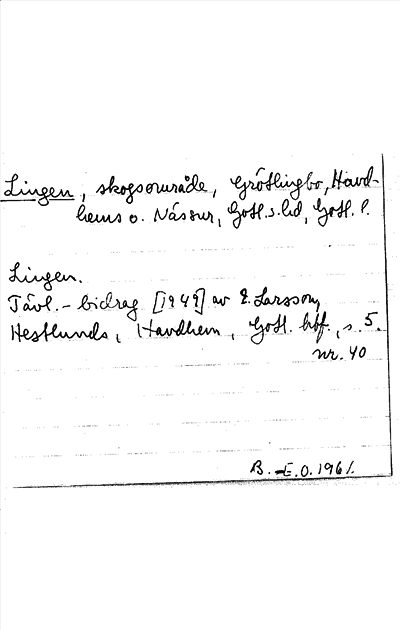 Lingen, skogsområde, Grötlingbo, Havd-
hems o. Näs snr, Gotl. s. hd, Gotl. l.
Lingen.
Tävl.-bidrag [1949] av E. Larsson,
Hestlunds, Havdhem, Gotl. hbf., s. 5.
nr. 40
B.-E.O. 1961.